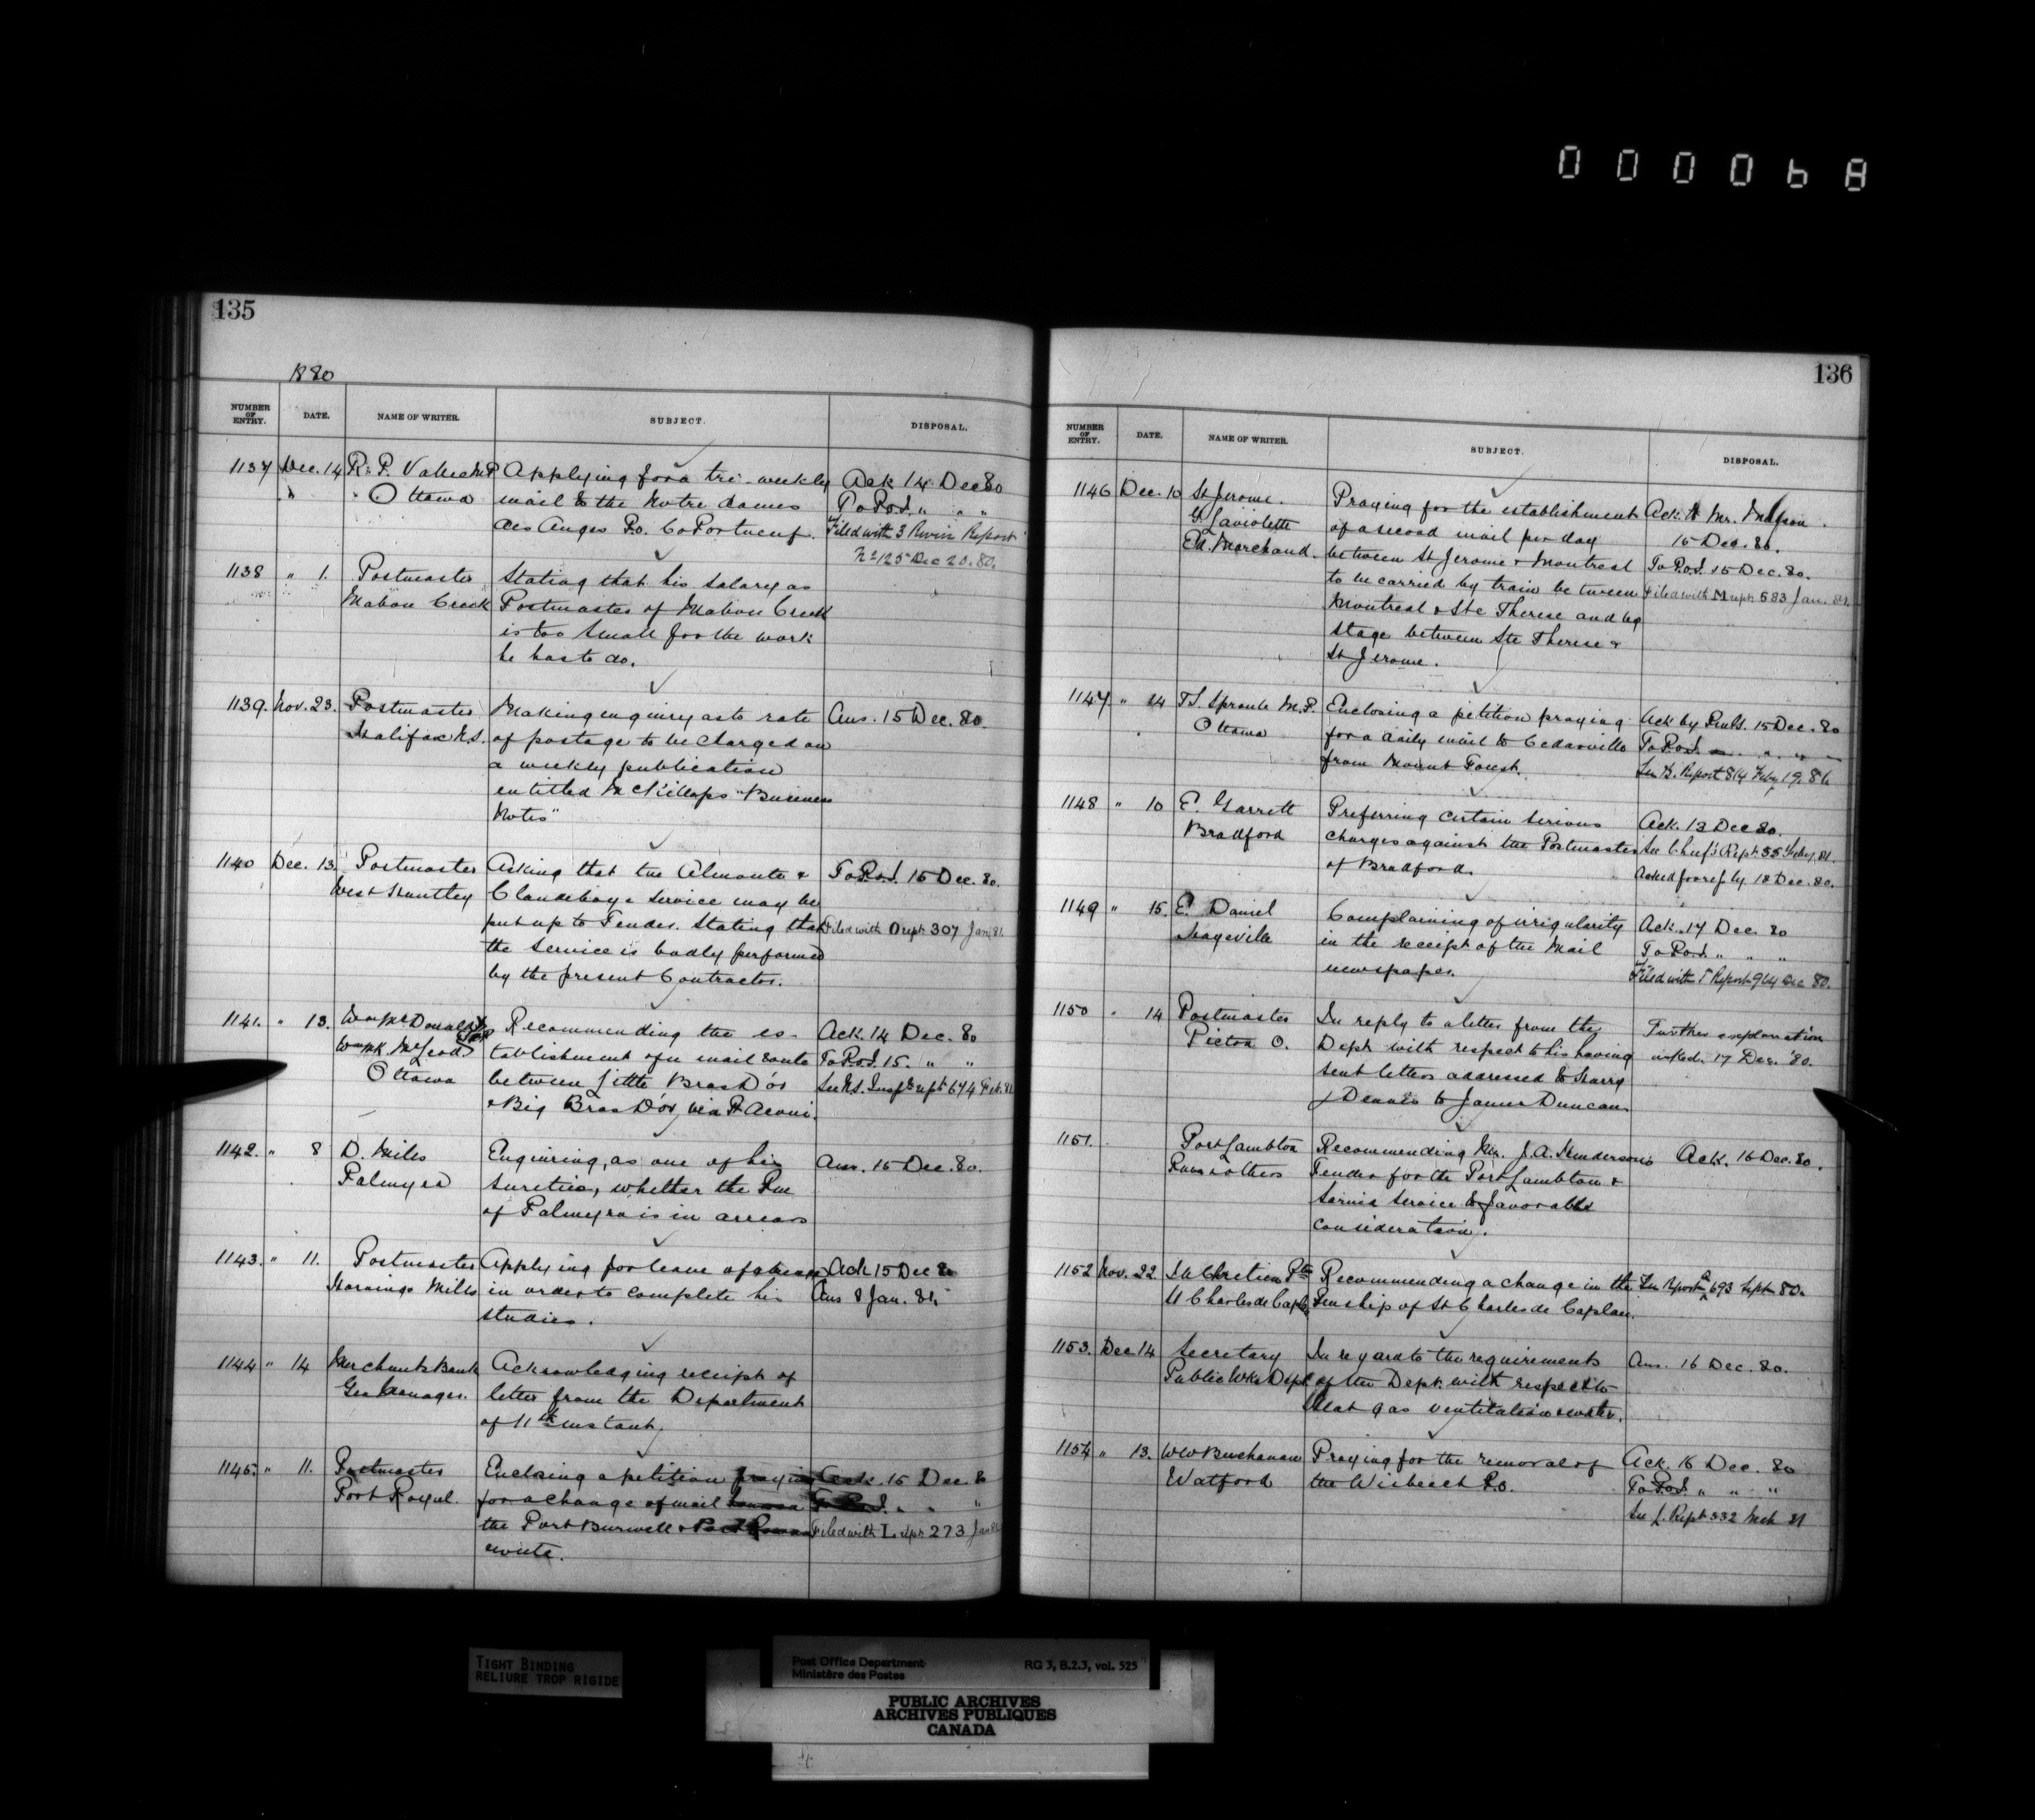 000068
135
1880
NUMBER OF ENTRY. DATE. NAME OF WRITER. SUBJECT. DISPOSAL.
1137 Dec. 14 R. P. Vallee M.P. Applying for a tri-weekly Ack 14 Dec 80
" " Ottawa mail to the Notre Dames To P.O.I. " " "
des Anges P.O. Co Portneuf. Filed with 3 Rivers Report
No 125 Dec 20. 80.
1138 " 1. Postmaster Stating that his salary as
Mabou Creek Postmaster of Mabou Creek
is too small for the work
he has to do.
1139. Nov. 23. Postmaster Making enquiry as to rate Ans. 15 Dec. 80.
Halifax N.S. of postage to be charged on
a weekly publication
entitled McKillops "Business
Notes"
1140 Dec. 13. Postmaster Asking that the Almonte & To P.O.I. 15 Dec. 80.
West Huntley Clandeboye service may be
put up to Tender. Stating that Filed with O rept 307 Jan 81.
the service is badly performed
by the present Contractor.
1141. " 13. Wm McDonald Recommending the es- Ack. 14 Dec. 80
Wm McLeod tablishment of a mail route To P.O.I. 15. " "
Ottawa between Little Bras D'or See N.S. Insp rept 674 Feb. 81
& Big Bras D'or, via Pt Aconi.
1142. " 8 D. Miles Enquiring, as one of his Ans. 15 Dec. 80.
Palmyra sureties, whether the Pm
of Palmyra is in arrears
1143. " 11. Postmaster Applying for leave of absence Ack 15 Dec 80
Hornings Mills in order to complete his Ans 8 Jan. 81.
studies.
1144 " 14 Merchants Bank Acknowledging receipt of
Gen Manager. letter from the Department
of 11th instant.
1145. " 11. Postmaster Enclosing a petition praying Ack. 15 Dec. 80
Port Royal. for a change of mail To P.O.I. " " "
the Port Burwell & Port Rowan Filed with L rept 273 Jan 81
route.
136
NUMBER OF ENTRY. DATE. NAME OF WRITER. SUBJECT. DISPOSAL.
1146 Dec. 10 St Jerome. Praying for the establishment Ack to Mr.
G Laviolette of a second mail per day 15 Dec. 80.
Ed. Marchand. between St Jerome & Montreal To P.O.I. 15 Dec. 80.
to be carried by train between Filed with M rept 583 Jan. 81.
Montreal & Ste Therese and by
stage between Ste Therese &
St Jerome.
1147. " 14 T.S. Sproule M.P. Enclosing a petition praying Ack by 15 Dec. 80
Ottawa for a daily mail to Cedarville To P.O.I. " " "
from Mount Forest. See K. Report 814 Feby 19. 81.
1148 " 10 E. Garrett Preferring certain serious Ack. 13 Dec 80.
Bradford charges against the Postmaster See Chief's Rept. 35 Feby. 81.
of Bradford. Asked for ref by. 18 Dec. 80.
1149 " 15. E. Daniel Complaining of irregularity Ack. 17 Dec. 80
Mayeville in the receipt of the Mail To P.O.I. " " "
newspaper. Filed with T Report 964 Dec 80.
1150 " 14 Postmaster In reply to a letter from the Further explanation
Picton O. Dept. with respect to his having asked. 17 Dec. '80.
sent letters addressed to Harry
J Dennis to James Duncan.
1151. Port Lambton Recommending Mr. J.A. Henderson's Ack. 16 Dec. 80.
& others Tender for the Port Lambton &
Sarnia service to favorable
consideration.
1152 Nov. 22. Chretien Ptre Recommending a change in the See Report Q 693 Sept 80.
St Charles de Caplan Pmship of St Charles de Caplan.
1153. Dec 14 Secretary In regard to the requirements Ans. 16 Dec. 80.
Public Wks Dept. of the Dept. with respect to
Heat gas ventilation & water.
1154 " 13. W W Buchanan Praying for the removal of Ack. 16 Dec. 80
Watford the Wisbeach P.O. To P.O.I. " " "
See L. Rept 332 Mch 81
TIGHT BINDING
RELIURE TROP RIGIDE
Post Office Department RG 3, B.2.3, vol. 525
Ministère des Postes
PUBLIC ARCHIVES
ARCHIVES PUBLIQUES
CANADA